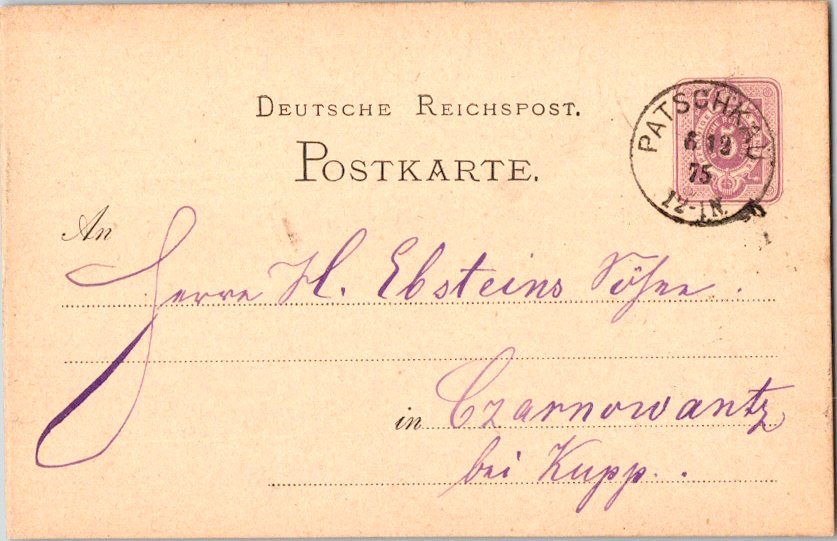 DEUTSCHE REICHSPOST.
POSTKARTE.
PATSCHKAU
6 12
75
12-1N.
5
An
Herrn H. Ebsteins Söhne.
in Czarnowantz
bei Kupp..